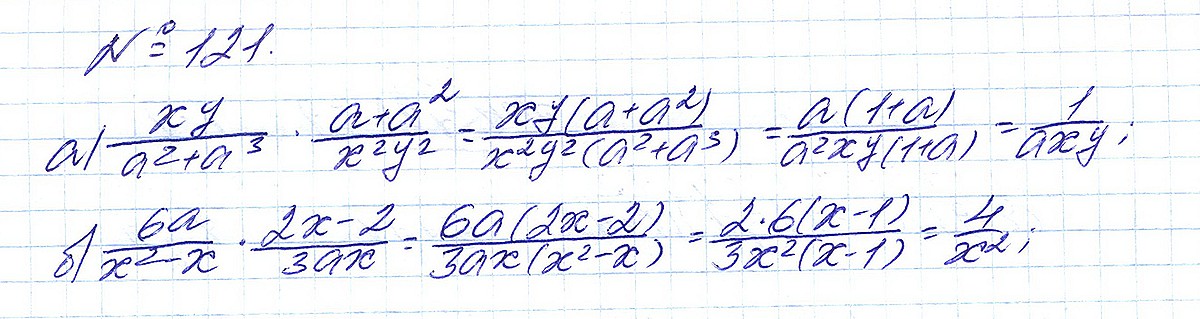 № 121.
а) \frac{xy}{a^2+a^3} \cdot \frac{a+a^2}{x^2y^2} = \frac{xy(a+a^2)}{x^2y^2(a^2+a^3)} = \frac{a(1+a)}{a^2xy(1+a)} = \frac{1}{axy};
б) \frac{6a}{x^2-x} \cdot \frac{2x-2}{3ax} = \frac{6a(2x-2)}{3ax(x^2-x)} = \frac{2 \cdot 6(x-1)}{3x^2(x-1)} = \frac{4}{x^2};